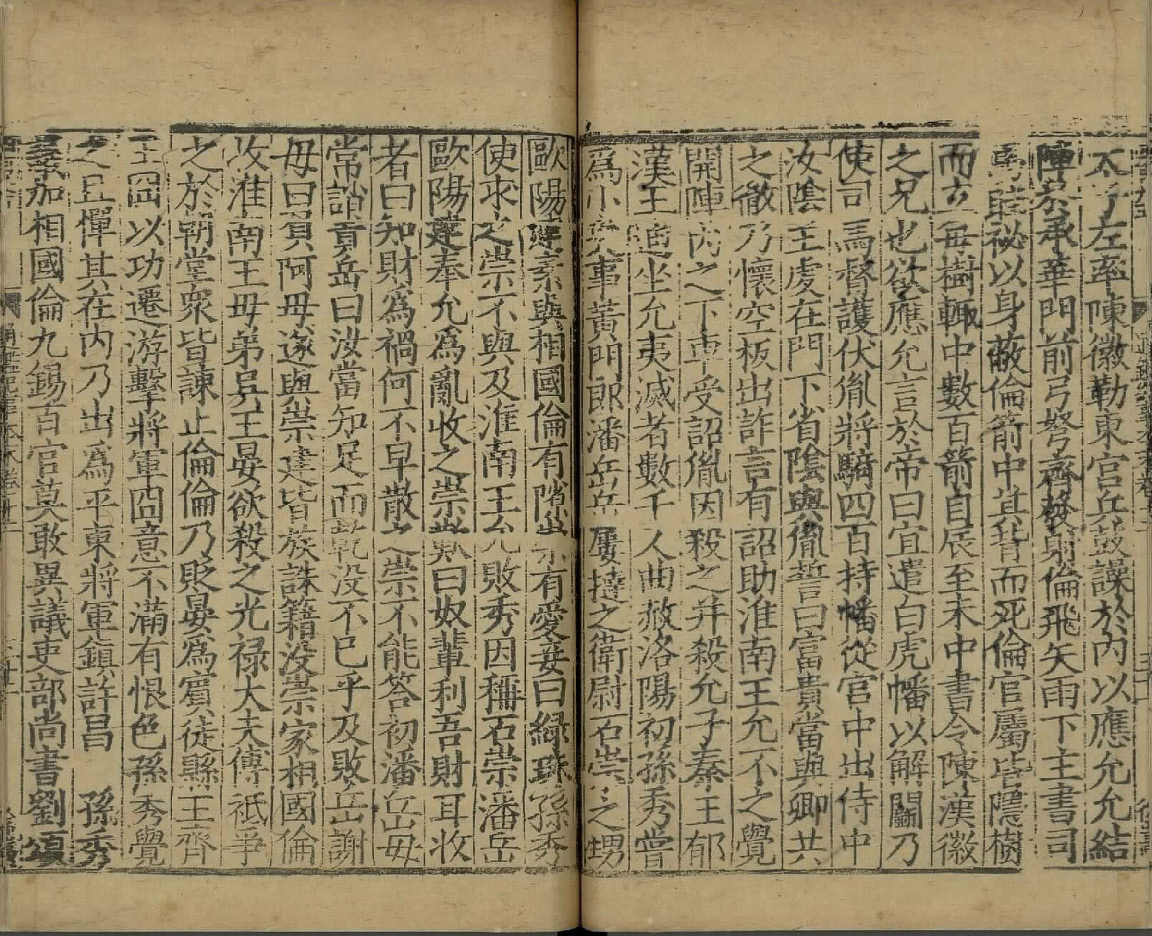 太子左率陳徽勒東宮兵鼓譟於內以應允允結
陣於承華門前弓弩齊發射倫飛矢雨下主書司
馬眭祕以身蔽倫箭中其背而死倫官屬皆隱樹
而立每樹輒中數百箭自辰至未中書令陳準徽
之兄也欲應允言於帝曰宜遣白虎幡以解鬬乃
使司馬督護伏胤將騎四百持幡從宮中出侍中
汝陰王虔在門下省陰與胤誓曰富貴當與卿共
之徹乃懷空板出詐言有詔助淮南王允不之覺
開陣內之下車受詔胤因殺之并殺允子秦王郁
漢王迪坐允夷滅者數千人曲赦洛陽初孫秀嘗
爲小吏事黃門郎潘岳岳屢撻之衛尉石崇之甥
歐陽建素與相國倫有隙崇有愛妾曰綠珠孫秀
使求之崇不與及淮南王允敗秀因稱石崇潘岳
歐陽建奉允爲亂收之崇歎曰奴輩利吾財耳收
者曰知財爲禍何不早散之崇不能答初潘岳母
常誚責岳曰汝當知足而乾没不已乎及敗岳謝
母曰負阿母遂與崇建皆族誅籍没崇家相國倫
收淮南王母弟吳王晏欲殺之光禄大夫傅祗爭
之於朝堂衆皆諫止倫倫乃貶晏爲賔徒縣王齊
王冏以功遷游擊將軍冏意不滿有恨色孫秀覺
之且憚其在内乃出爲平東將軍鎮許昌　孫秀
議加相國倫九錫百官莫敢異議吏部尚書劉頌